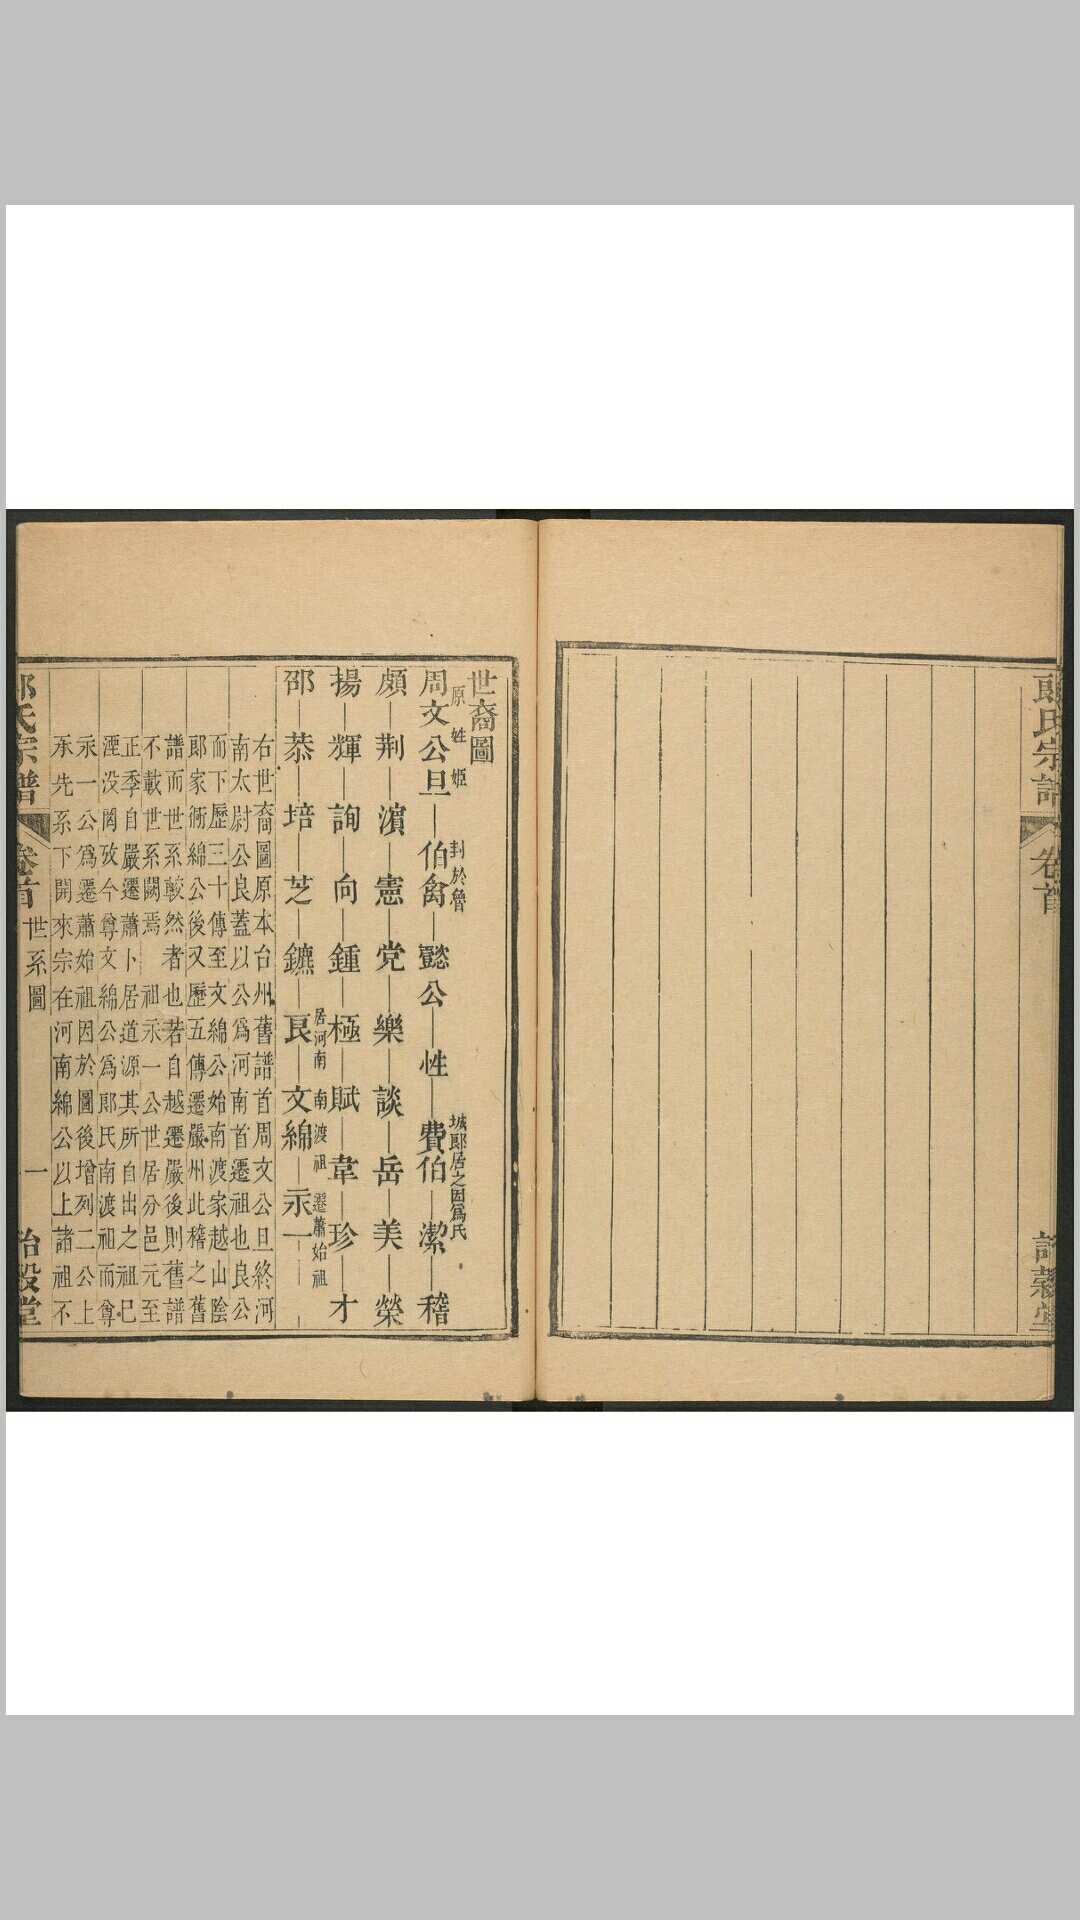 郎氏宗譜
卷首
詒穀堂
世裔圖
原姓姬
封於魯
城郎居之因爲氏
周文公旦 伯禽 懿公 性 費伯 潔 稽
頗 荆 濵 憲 党 樂 談 岳 美 榮
揚 輝 詢 向 鍾 極 賦 韋 珍 才
居河南
南渡祖
遷蕭始祖
邵 恭 培 芝 鑣 良 文綿 汞一
右世裔圖原本台州舊譜首周文公旦終河
南太尉公良蓋以公爲河南首遷祖也良公
而下歷三十傳至文綿公始南渡家越山陰
郎家衖綿公後又歷五傳遷嚴州此稽之舊
譜而世系較然者也若自越遷嚴後則舊譜
不載世系闕焉 祖汞一公世居分邑元至
正季自嚴遷蕭卜居道源其所自出之祖已
湮没罔攷今尊文綿公爲郎氏南渡祖而尊
汞一公爲遷蕭始祖因於圖後增列二公上
承先系下開來宗在河南綿公以上諸祖不
郎氏宗譜
卷首
世系圖
一
詒穀堂